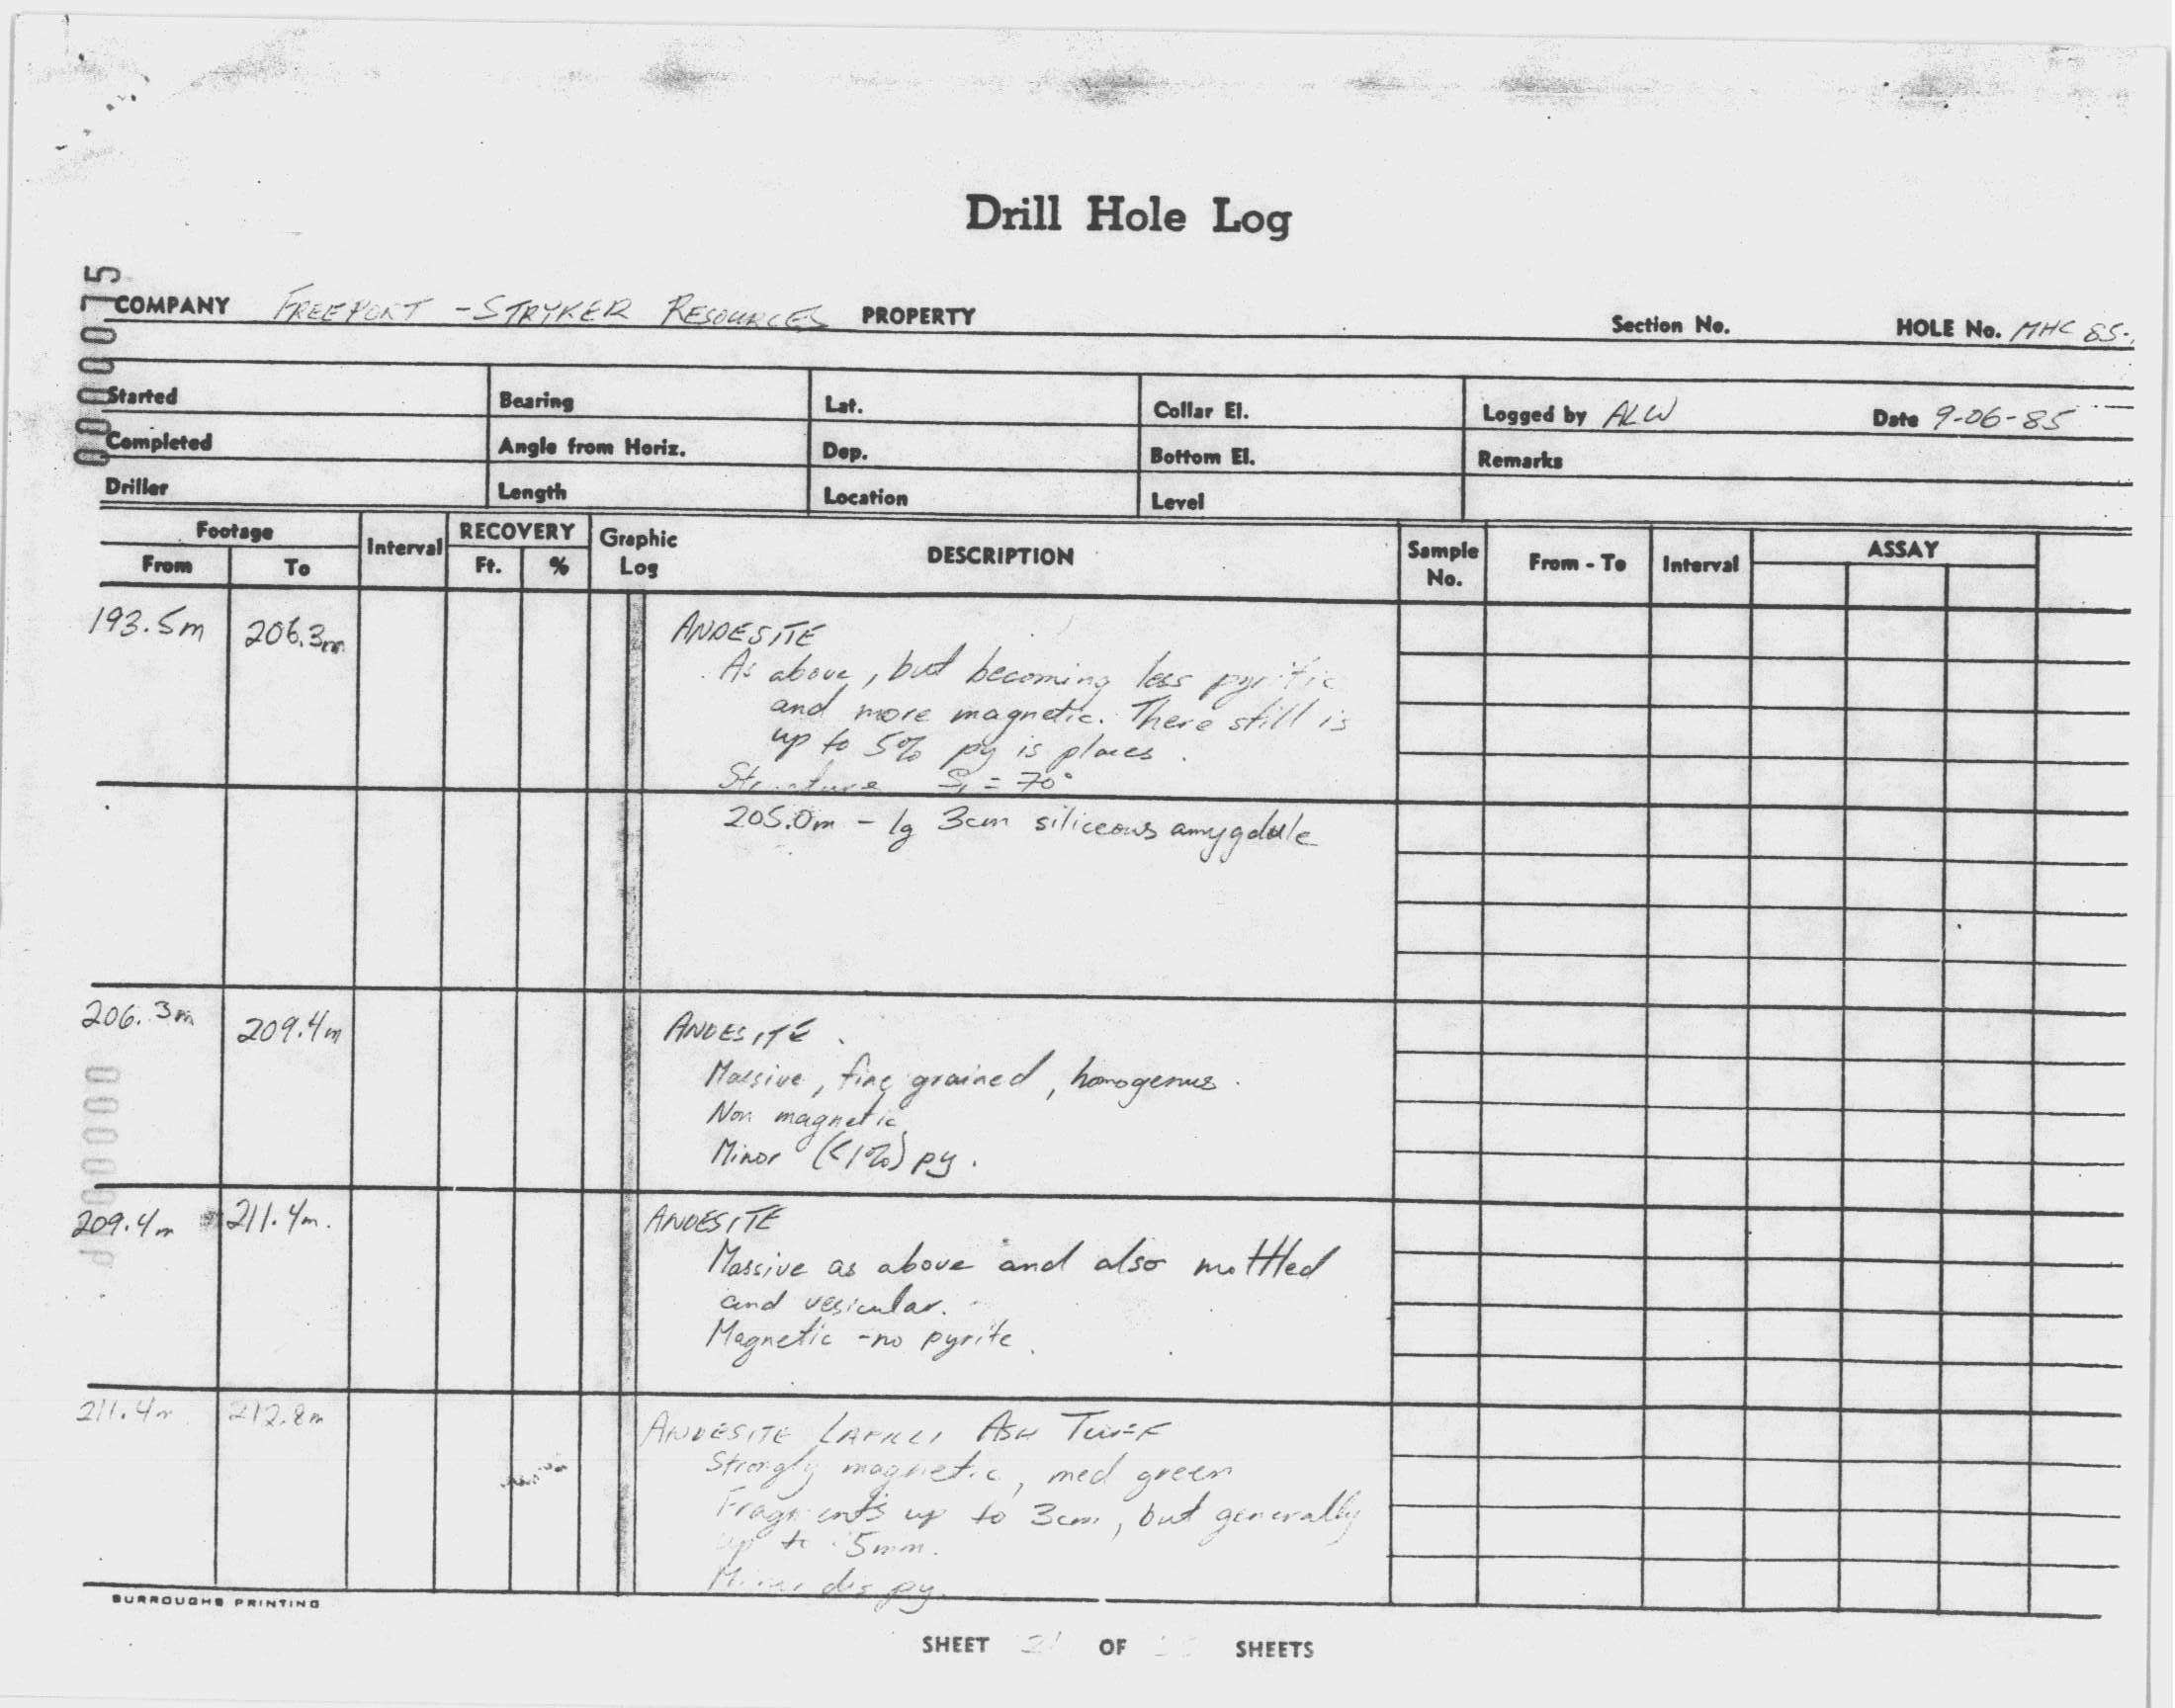 Drill Hole Log
0000075
COMPANY FREEPORT - STRYKER RESOURCES PROPERTY Section No. HOLE No. MHC 85-
Started Bearing Lat. Collar El. Logged by ALW Date 9-06-85
Completed Angle from Horiz. Dep. Bottom El. Remarks
Driller Length Location Level
Footage Interval RECOVERY Graphic Log DESCRIPTION Sample No. From - To Interval ASSAY
From To Ft. %
193.5m 206.3m ANDESITE
As above, but becoming less pyritic
and more magnetic. There still is
up to 5% py is places.
Structure S1 = 70°
205.0m - lg 3cm siliceous amygdule
206.3m 209.4m ANDESITE.
Massive, fine grained, homogenus.
Non magnetic
Minor (<1%) py.
209.4m 211.4m. ANDESITE
Massive as above and also mottled
and vesicular.
Magnetic - no pyrite.
211.4m 212.8m ANDESITE LAPILLI ASH TUFF
Strongly magnetic, med green
Fragments up to 3cm, but generally
up to 5mm.
Minor dis py.
BURROUGHS PRINTING
SHEET OF SHEETS